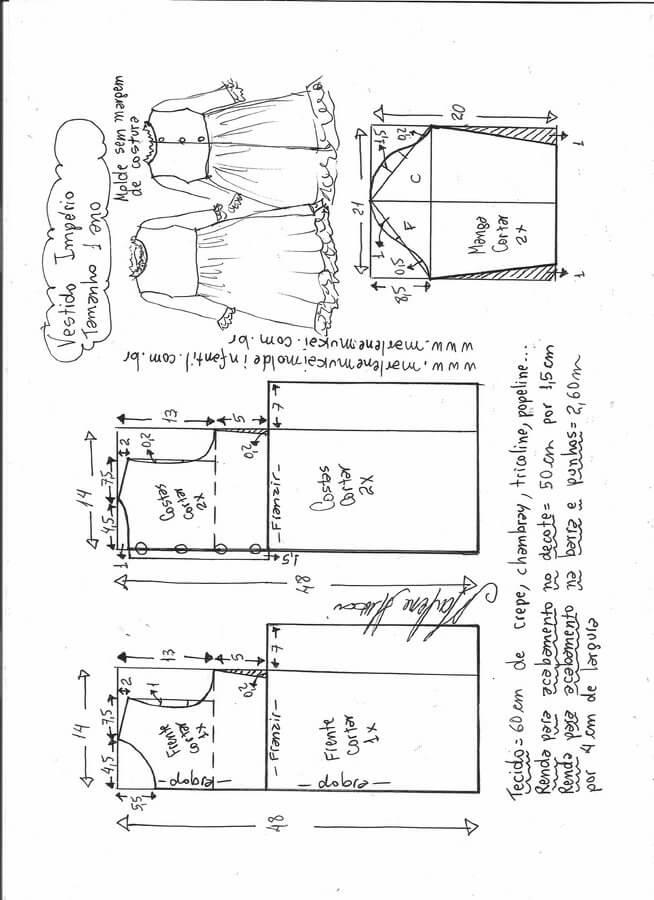 Vestido Império
Tamanho 1 ano
Molde sem margem
de costura
www.marlenemukaimoldeinfantil.com.br
www.marlenemukai.com.br
14
4,5
7,5
2
5,5
1
13
5
0,2
7
48
Frente
cortar
1x
dobra
Franzir
Frente
Cortar
1x
dobra
14
4,5
7,5
2
1
0,2
13
5
0,2
7
1,5
48
Costas
cortar
2x
Franzir
Costas
Cortar
2x
21
20
8,5
1
0,5
1,5
0,2
F
C
Manga
Cortar
2x
1
1
Tecido = 60 cm de crepe, chambray, tricoline, popeline...
Renda para acabamento no decote = 50 cm por 1,5 cm
Renda para acabamento na barra e punhos = 2,60 m
por 4 cm de largura